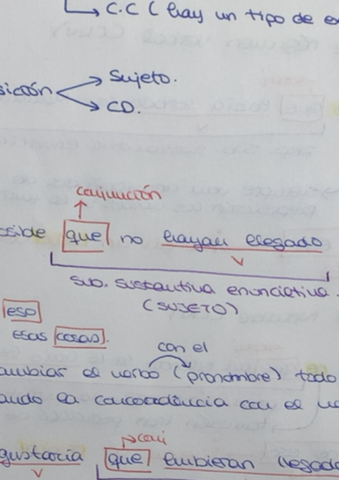 C.C (hay un tipo de
Sujeto.
CD.
conjunción
que no hayan llegado
V
sub. sustantiva enunciativa.
(SUJETO)
eso
esas cosas.
con el
el verbo (pronombre) todo
la concordancia con el
conj
gustaría que hubieran llegado
V